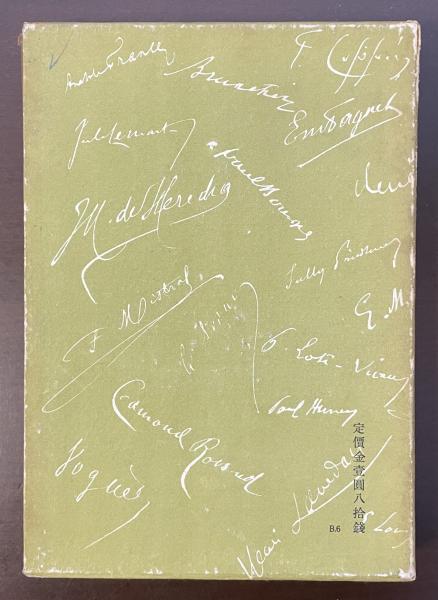 Anatole France
F. Coppée
Brunetière
Em Faguet
Jules Lemaitre
J M. de Heredia
Sully Prudhomme
G. M.
F Mistral
P. Loti - Viaud
Paul Hervieu
Edmond Rostand
Vogüé
Henri Lavedan
定價金壹圓八拾錢
B.6